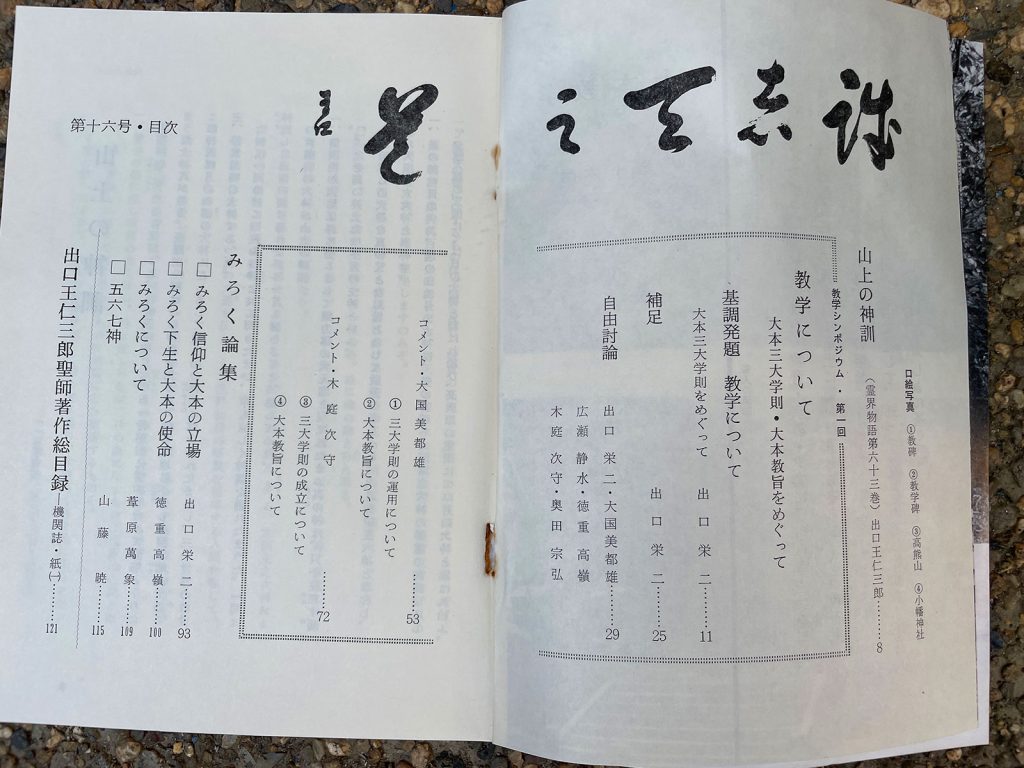 天之
口絵写真 ①教碑 ②教学碑 ③高熊山 ④小幡神社
山上の神訓 (霊界物語第六十三巻) 出口王仁三郎………8
教学シンポジウム・第一回
教学について
大本三大学則・大本教旨をめぐって
基調発題 教学について 出口栄二………11
大本三大学則をめぐって
補足 出口栄二………25
自由討論 出口栄二・大国美都雄………29
広瀬静水・徳重高嶺
木庭次守・奥田宗弘
コメント・大国美都雄………53
① 三大学則の運用について
② 大本教旨について
コメント・木庭次守………72
③ 三大学則の成立について
④ 大本教旨について
みろく論集
□ みろく信仰と大本の立場 出口栄二………93
□ みろく下生と大本の使命 徳重高嶺………100
□ みろくについて 葦原萬象………109
□ 五六七神 山藤暁………115
出口王仁三郎聖師著作総目録―機関誌・紙㈠………121
第十六号・目次